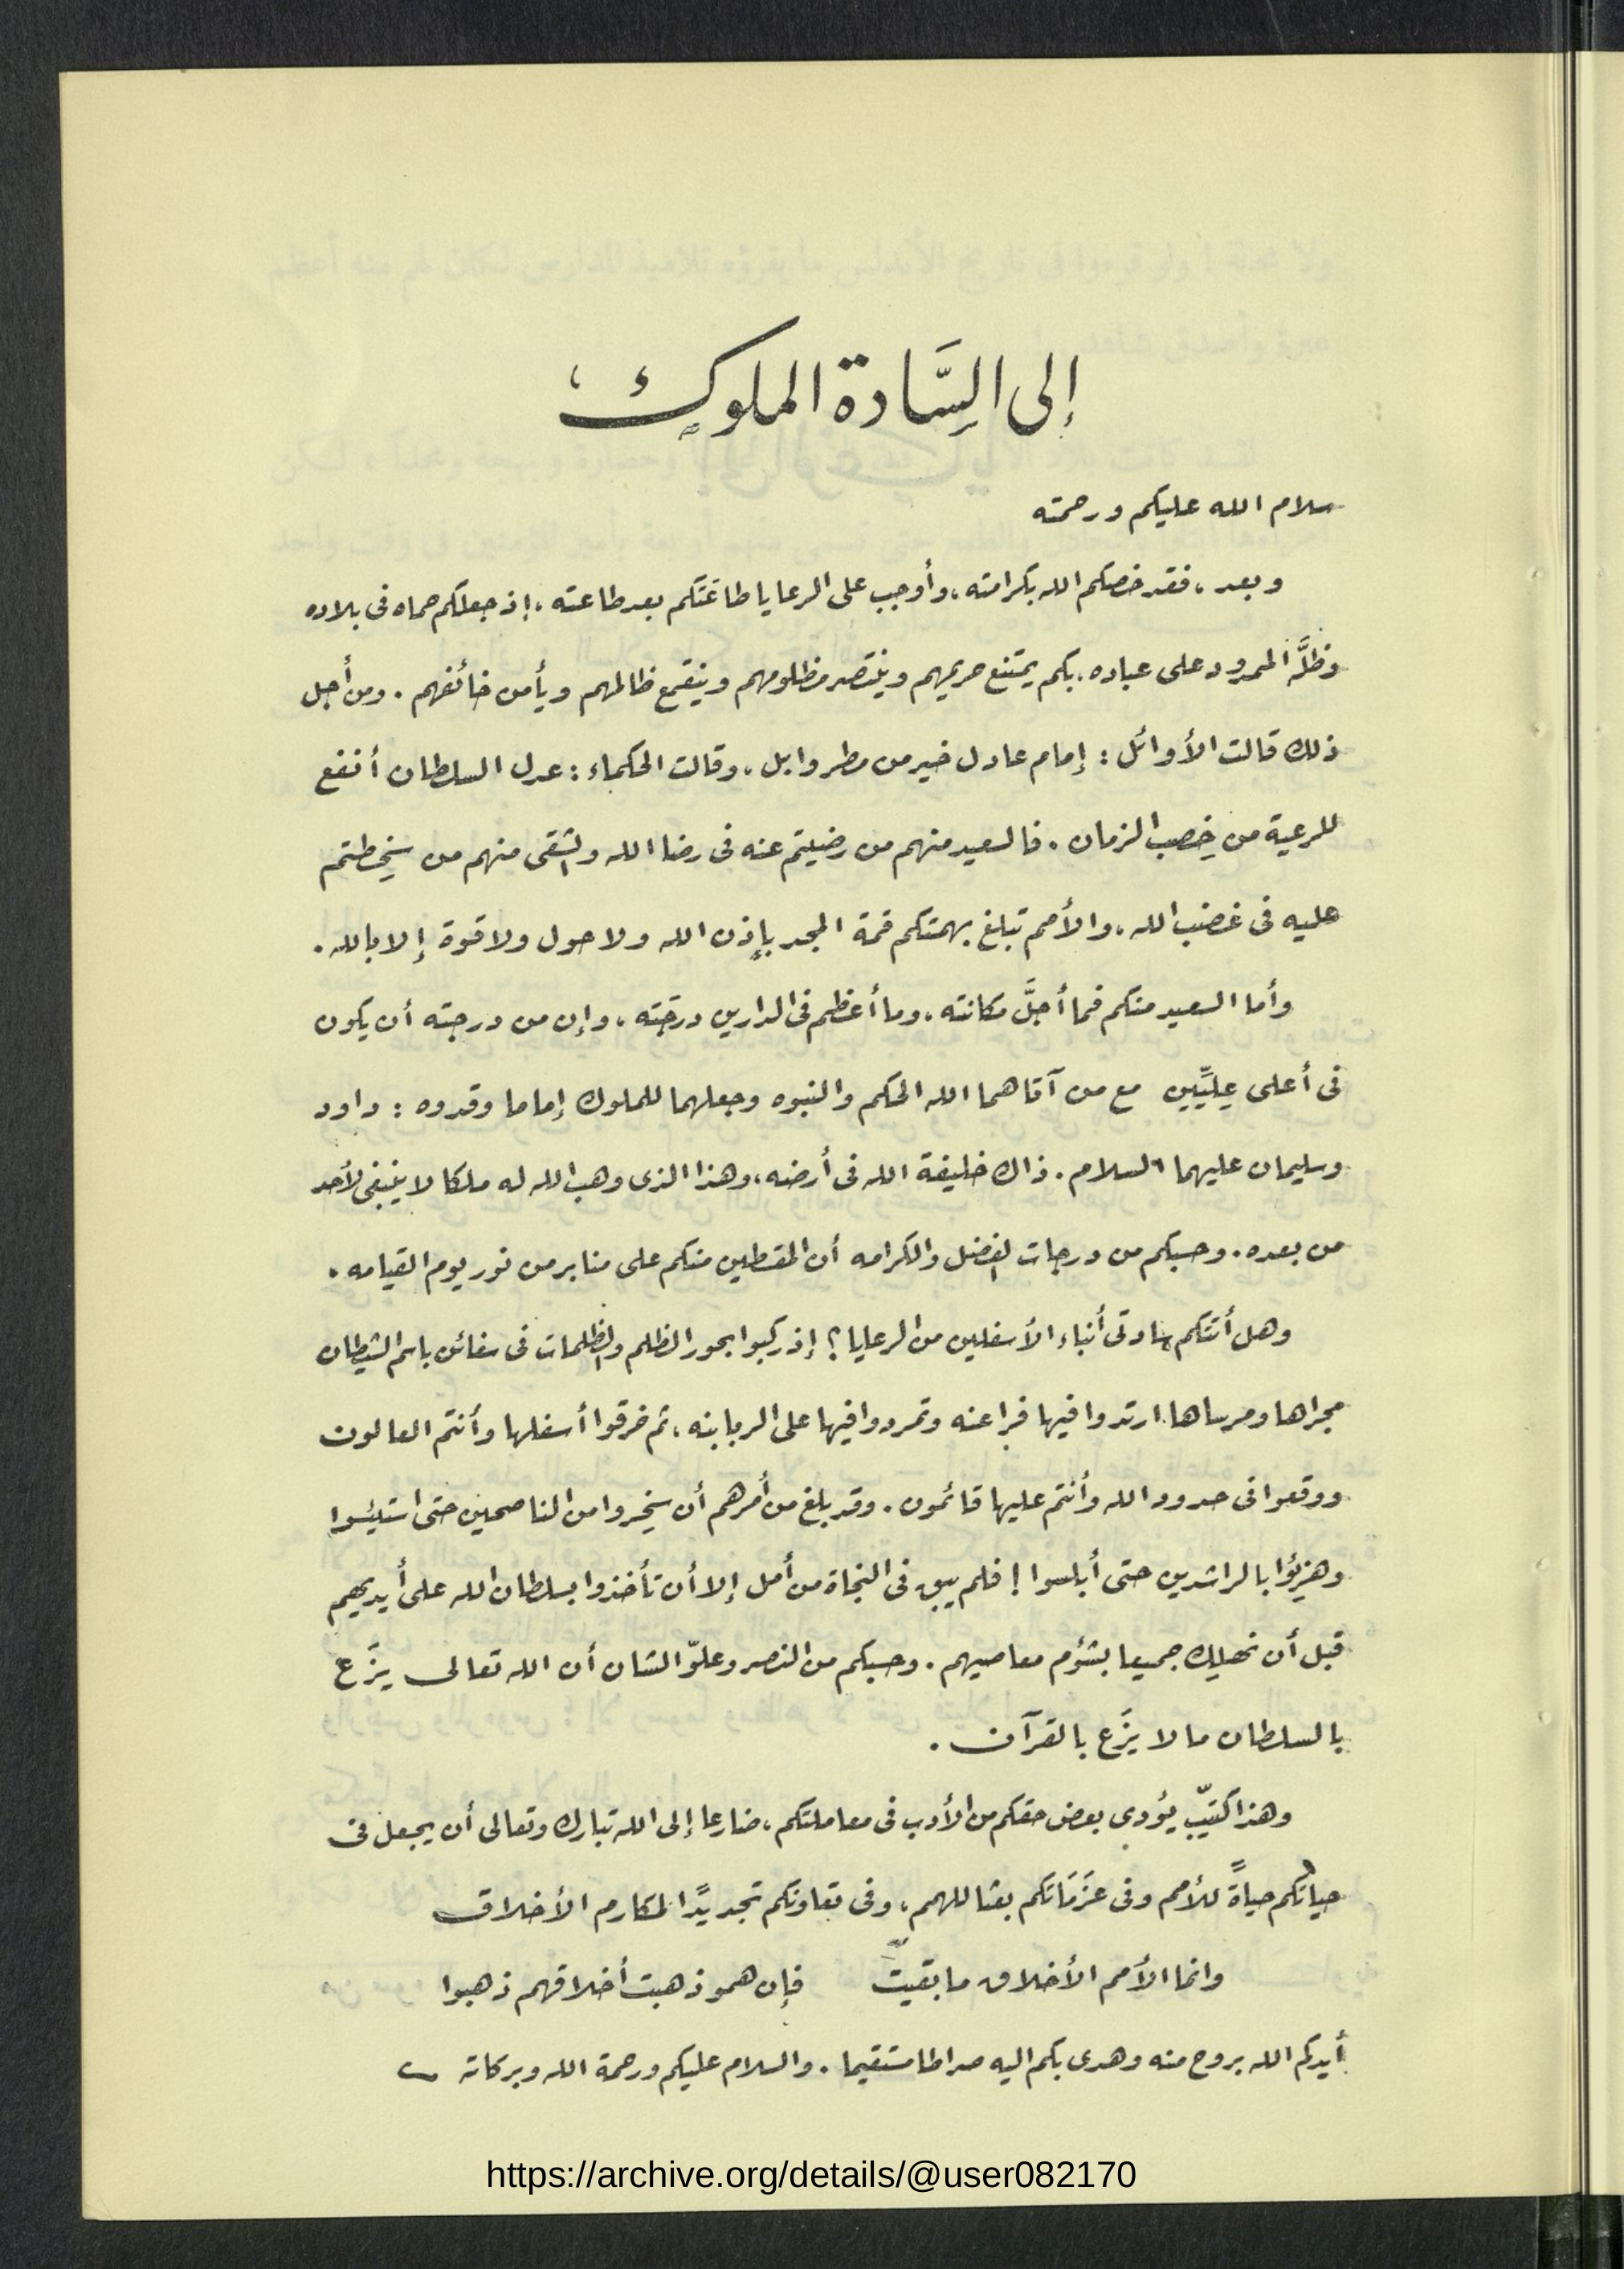 إلى السَّادة الملوك
سلام الله عليكم ورحمته
وبعد، فقد خصكم الله بكرامته، وأوجب على الرعايا طاعتَكم بعد طاعته، إذ جعلكم حماه فى بلاده
وظلَّه الممدود على عباده. بكم يمتنع حريمهم وينتصر مظلومهم وينقمع ظالمهم ويأمن خائفهم. ومن أجل
ذلك قالت الأوائل: إمام عادل خير من مطر وابل، وقالت الحكماء: عدل السلطان أنفع
للرعية من خِصب الزمان. فالسعيد منهم من رضيتم عنه فى رضا الله والشقى منهم من سخِطتم
عليه فى غضب الله، والأمم تبلغ بهمتكم قمة المجد بإذن الله ولا حول ولا قوة إلا بالله.
وأما السعيد منكم فما أجلَّ مكانته، وما أعظم فى الدارين درجَته، وإن من درجته أن يكون
فى أعلى عِليِّين مع من آتاهما الله الحكم والنبوه وجعلهما للملوك إماما وقدوه: داود
وسليمان عليهما السلام. ذاك خليفة الله فى أرضه، وهذا الذى وهب الله له ملكا لا ينبغى لأحد
من بعده. وحسبكم من درجات الفضل والكرامه أن المقسطين منكم على منابر من نور يوم القيامه.
وهل أتتكم سادتى أنباء الأسفلين من الرعايا؟ إذ ركبوا بحور الظلم والظلمات فى سفائن باسم الشيطان
مجراها ومرساها. ارتدوا فيها فراعنه وتمردوا فيها على الربابنه، ثم خرقوا أسفلها وأنتم العالون
ووقعوا فى حدود الله وأنتم عليها قائمون. وقد بلغ من أمرهم أن سخِروا من الناصحين حتى استيئسوا
وهزِئوا بالراشدين حتى أبلسوا! فلم يبق فى النجاة من أمل إلا أن تأخذوا بسلطان الله على أيديهم
قبل أن نهلِك جميعا بشؤم معاصيهم. وحسبكم من النصر وعلوّ الشان أن الله تعالى يزَع
بالسلطان ما لا يزَع بالقرآن.
وهذا كتيّب يؤدى بعض حقكم من الأدب فى معاملتكم، ضارعا إلى الله تبارك وتعالى أن يجعل فى
حياتكم حياةً للأمم وفى عَزَمَاتكم بعثا للهمم، وفى تعاونكم تجديدًا لمكارم الأخلاق
وانما الأمم الأخلاق ما بقيت فإن همو ذهبت أخلاقهم ذهبوا
أيدكم الله بروح منه وهدى بكم اليه صراطا مستقيما. والسلام عليكم ورحمة الله وبركاته
https://archive.org/details/@user082170